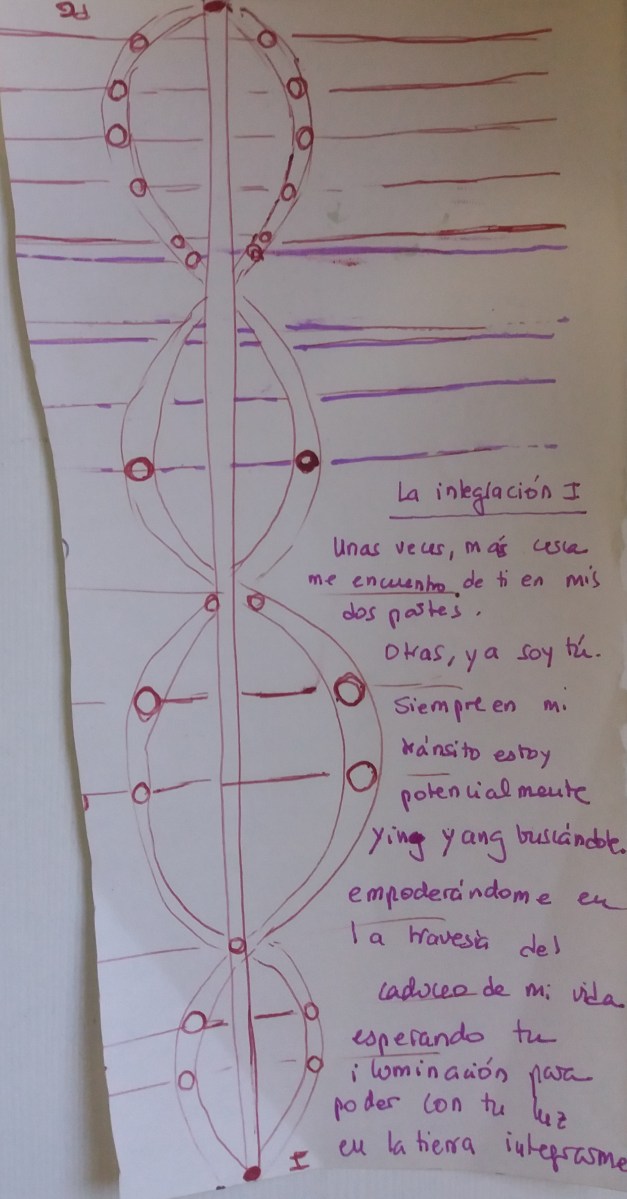 PG
La integración I
Unas veces, más cerca
me encuentro de ti en mis
dos partes.
Otras, ya soy tú.
Siempre en mi
tránsito estoy
potencialmente
ying yang buscándote.
empoderándome en
la travesía del
caduceo de mi vida
esperando tu
iluminación para
poder con tu luz
en la tierra integrarme
I